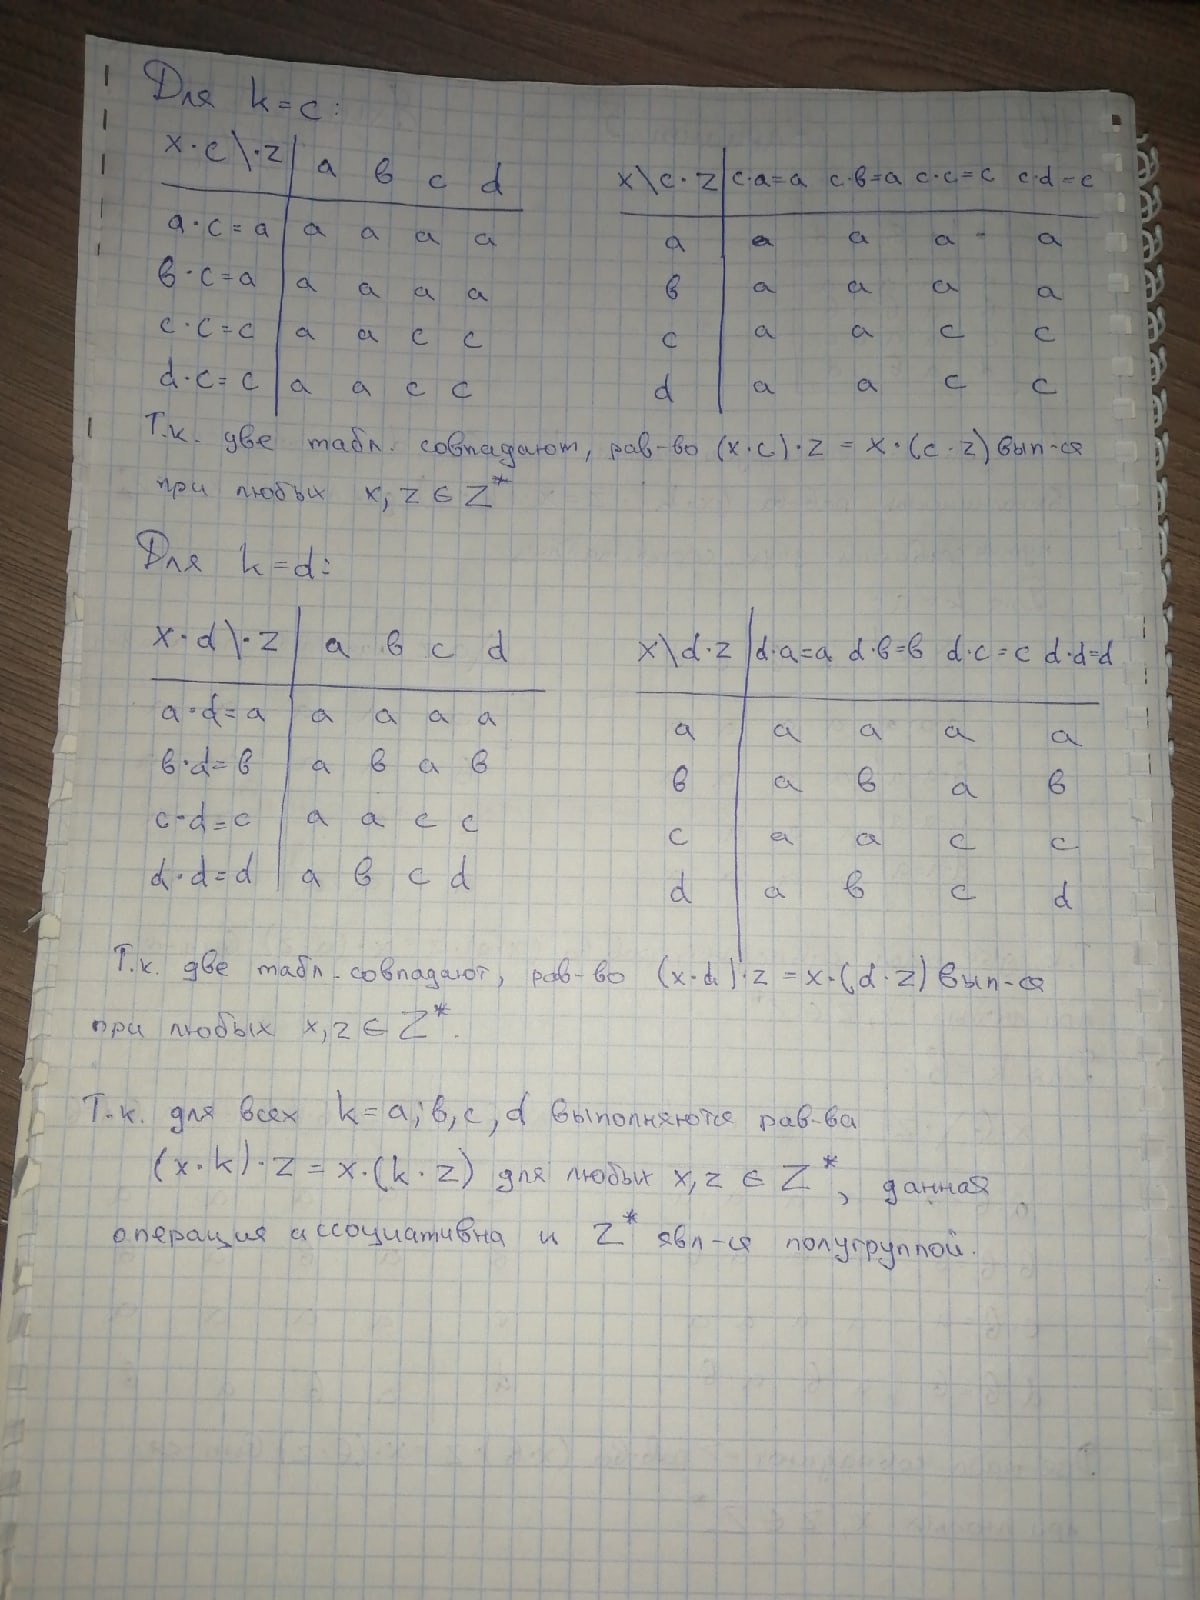 Для k=c:
x·c\·z | a в c d
a·c=a | a a a a
в·c=a | a a a a
c·c=c | a a c c
d·c=c | a a c c
x\c·z | c·a=a c·в=a c·c=c c·d=c
a | a a a a
в | a a a a
c | a a c c
d | a a c c
Т.к. две табл. совпадают, рав-во (x·c)·z = x·(c·z) вып-ся
при любых x, z ∈ Z*
Для k=d:
x·d\·z | a в c d
a·d=a | a a a a
в·d=в | a в a в
c·d=c | a a c c
d·d=d | a в c d
x\d·z | d·a=a d·в=в d·c=c d·d=d
a | a a a a
в | a в a в
c | a a c c
d | a в c d
Т.к. две табл. совпадают, рав-во (x·d)·z = x·(d·z) вып-ся
при любых x, z ∈ Z*.
Т.к. для всех k=a, в, c, d выполняются рав-ва
(x·k)·z = x·(k·z) для любых x, z ∈ Z*, данная
операция ассоциативна и Z* явл-ся полугруппой.